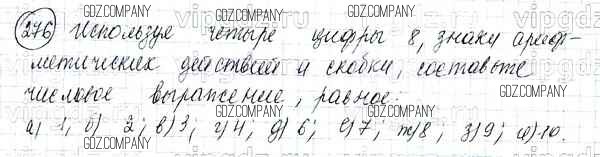 276 Используя четыре цифры 8, знаки ариф-
метических действий и скобки, составьте
числовое выражение, равное:
а) 1; б) 2; в) 3; г) 4; д) 6; е) 7; ж) 8; з) 9; и) 10.
GDZ.COMPANY GDZ.COMPANY GDZ.COMPANY
GDZ.COMPANY GDZ.COMPANY GDZ.COMPANY
GDZ.COMPANY GDZ.COMPANY GDZ.COMPANY
vipgdz